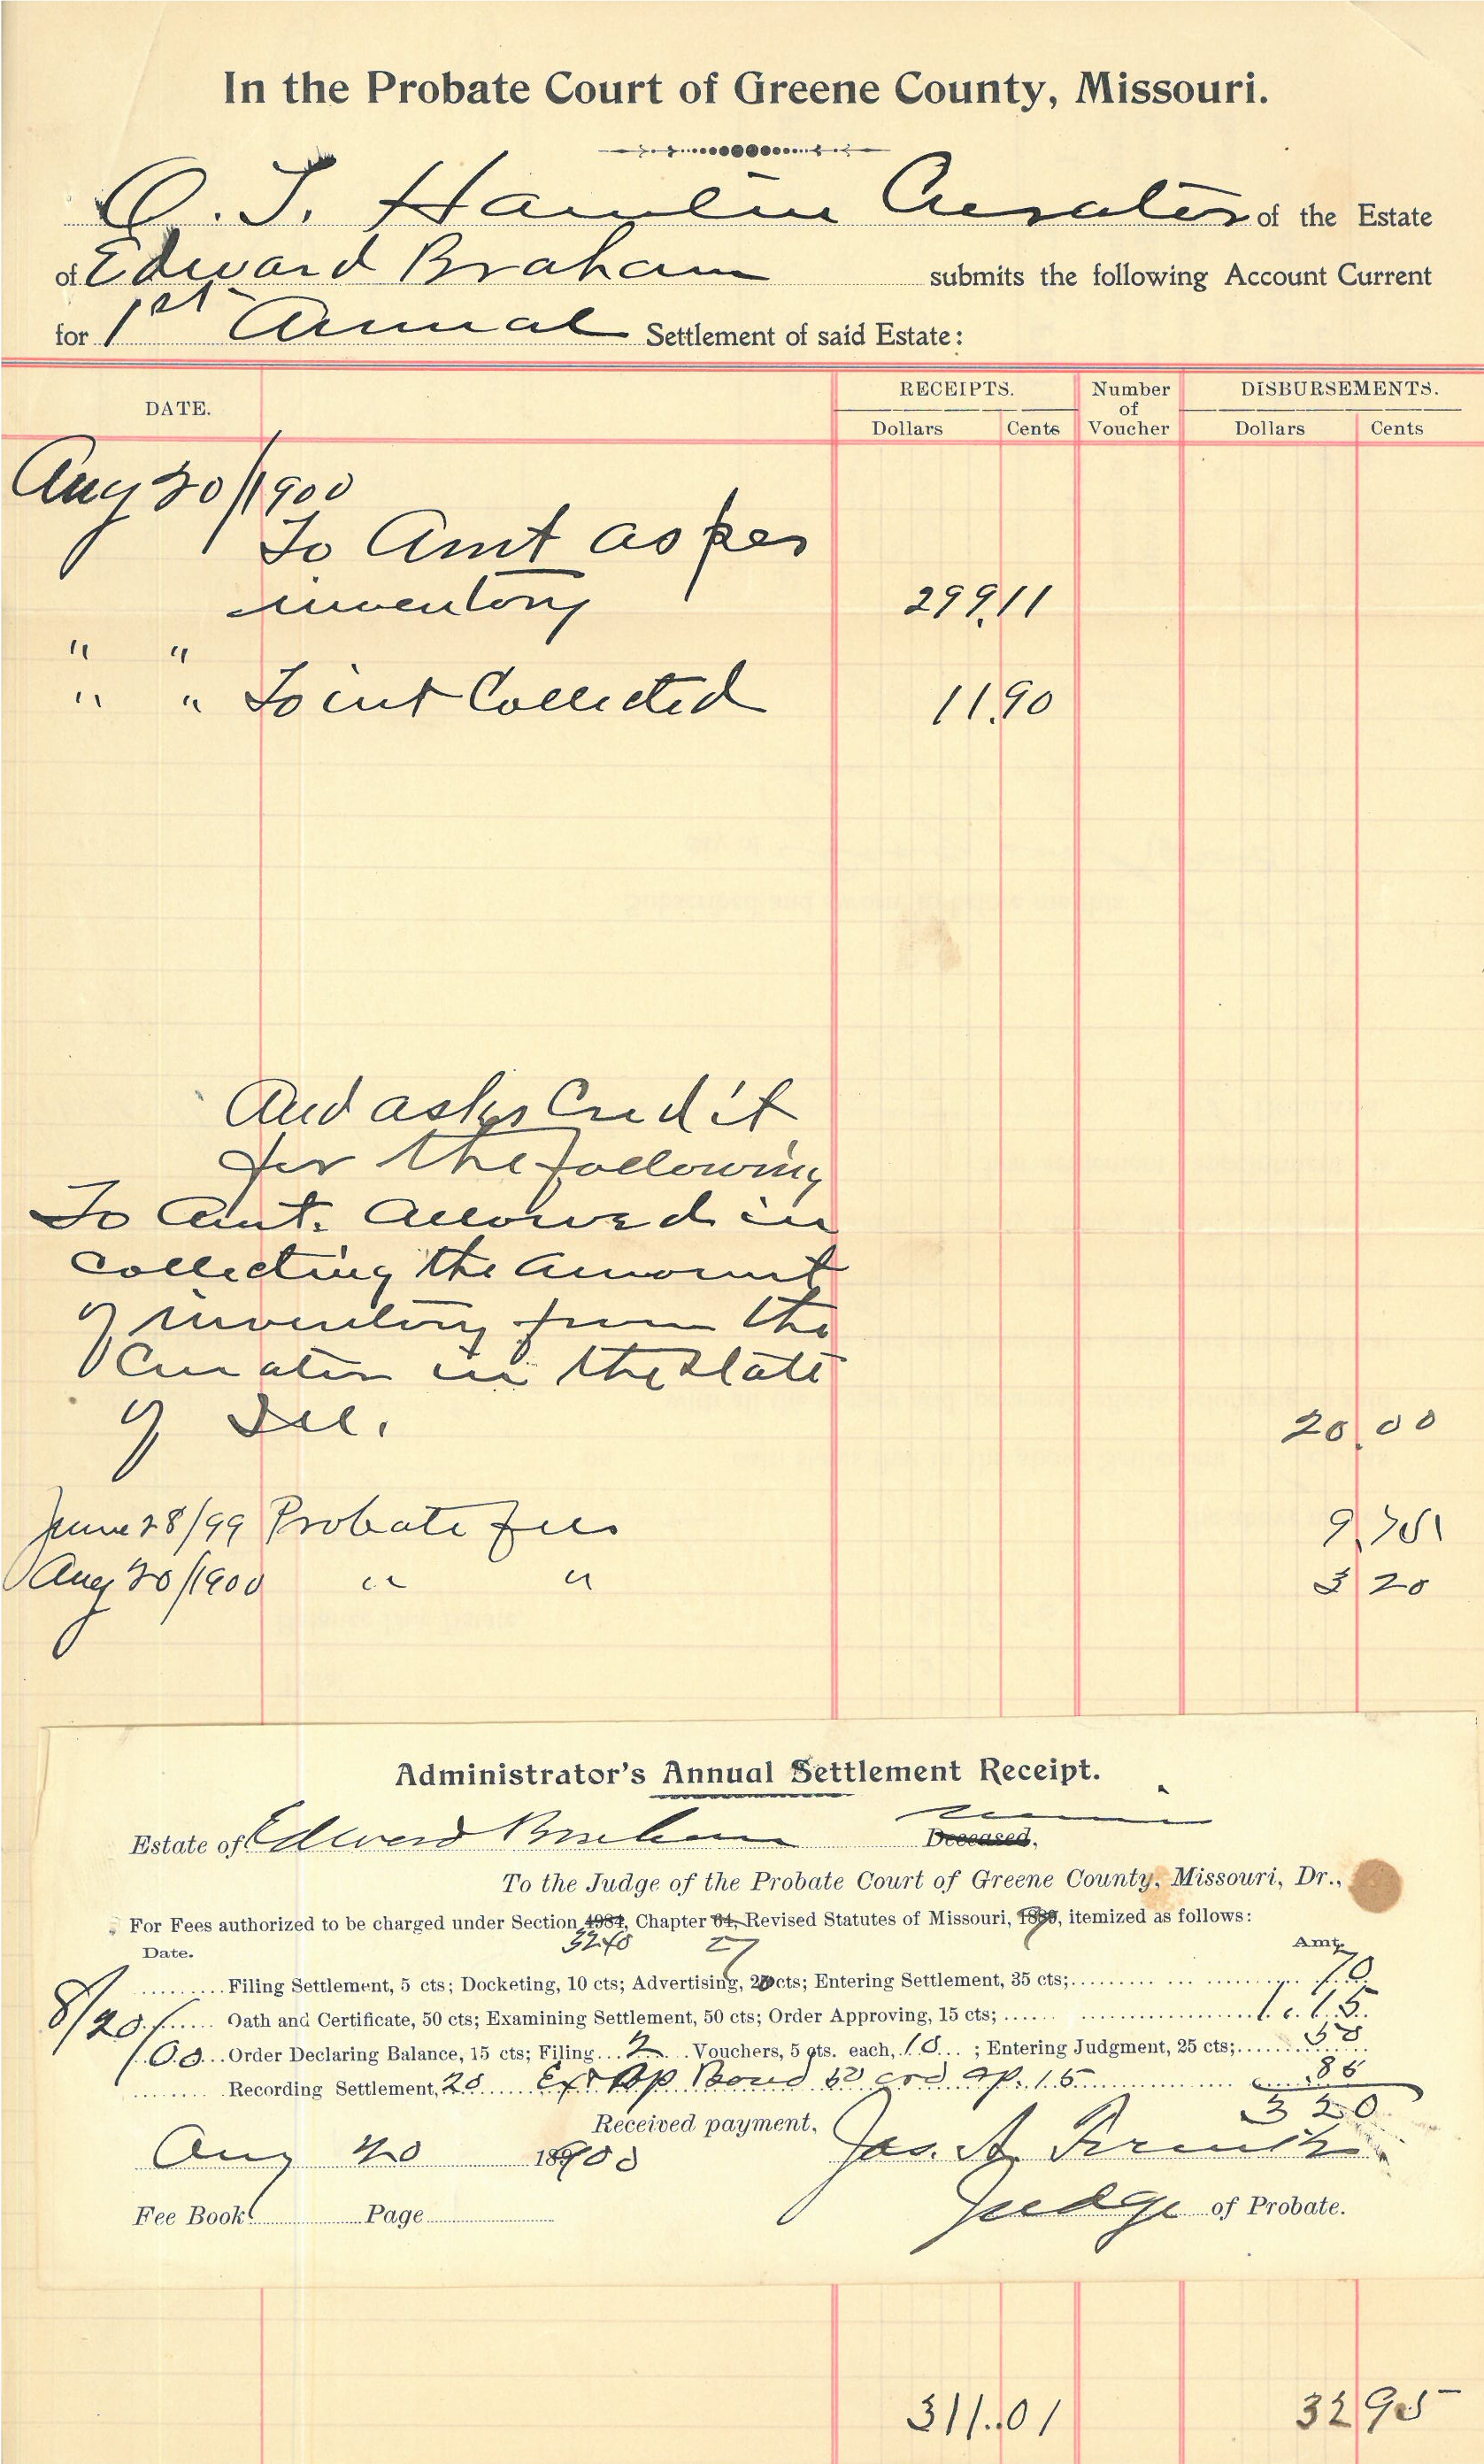 In the Probate Court of Greene County, Missouri.
O. T. Hamlin Curator of the Estate
of Edward Braham submits the following Account Current
for 1st Annual Settlement of said Estate:
DATE. RECEIPTS. Number of Voucher DISBURSEMENTS.
Dollars Cents Dollars Cents
Aug 20/1900
To Amt as per
inventory 299.11
" "
" " To int Collected 11.90
And asks Credit
for the following
To Amt. allowed in
collecting the amount
of inventory from the
Curator in the State
of Ill. 20.00
June 28/99 Probate fees 9.75
Aug 20/1900 " " 3 20
Administrator's Annual Settlement Receipt.
Estate of Edward Braham Deceased,
To the Judge of the Probate Court of Greene County, Missouri, Dr.,
For Fees authorized to be charged under Section 4984, Chapter 64, Revised Statutes of Missouri, 1889, itemized as follows:
3240 27
Date. Amt.
Filing Settlement, 5 cts; Docketing, 10 cts; Advertising, 20 cts; Entering Settlement, 35 cts; 70
8/20/ Oath and Certificate, 50 cts; Examining Settlement, 50 cts; Order Approving, 15 cts; 1.15
1900 Order Declaring Balance, 15 cts; Filing 2 Vouchers, 5 cts. each, 10 ; Entering Judgment, 25 cts; 50
Recording Settlement, 20 Ex & Ap Bond 50 ord ap. 15 85
3 20
Received payment,
Aug 20 1900 Jas. A.
Judge of Probate.
Fee Book Page
311.01 32 95